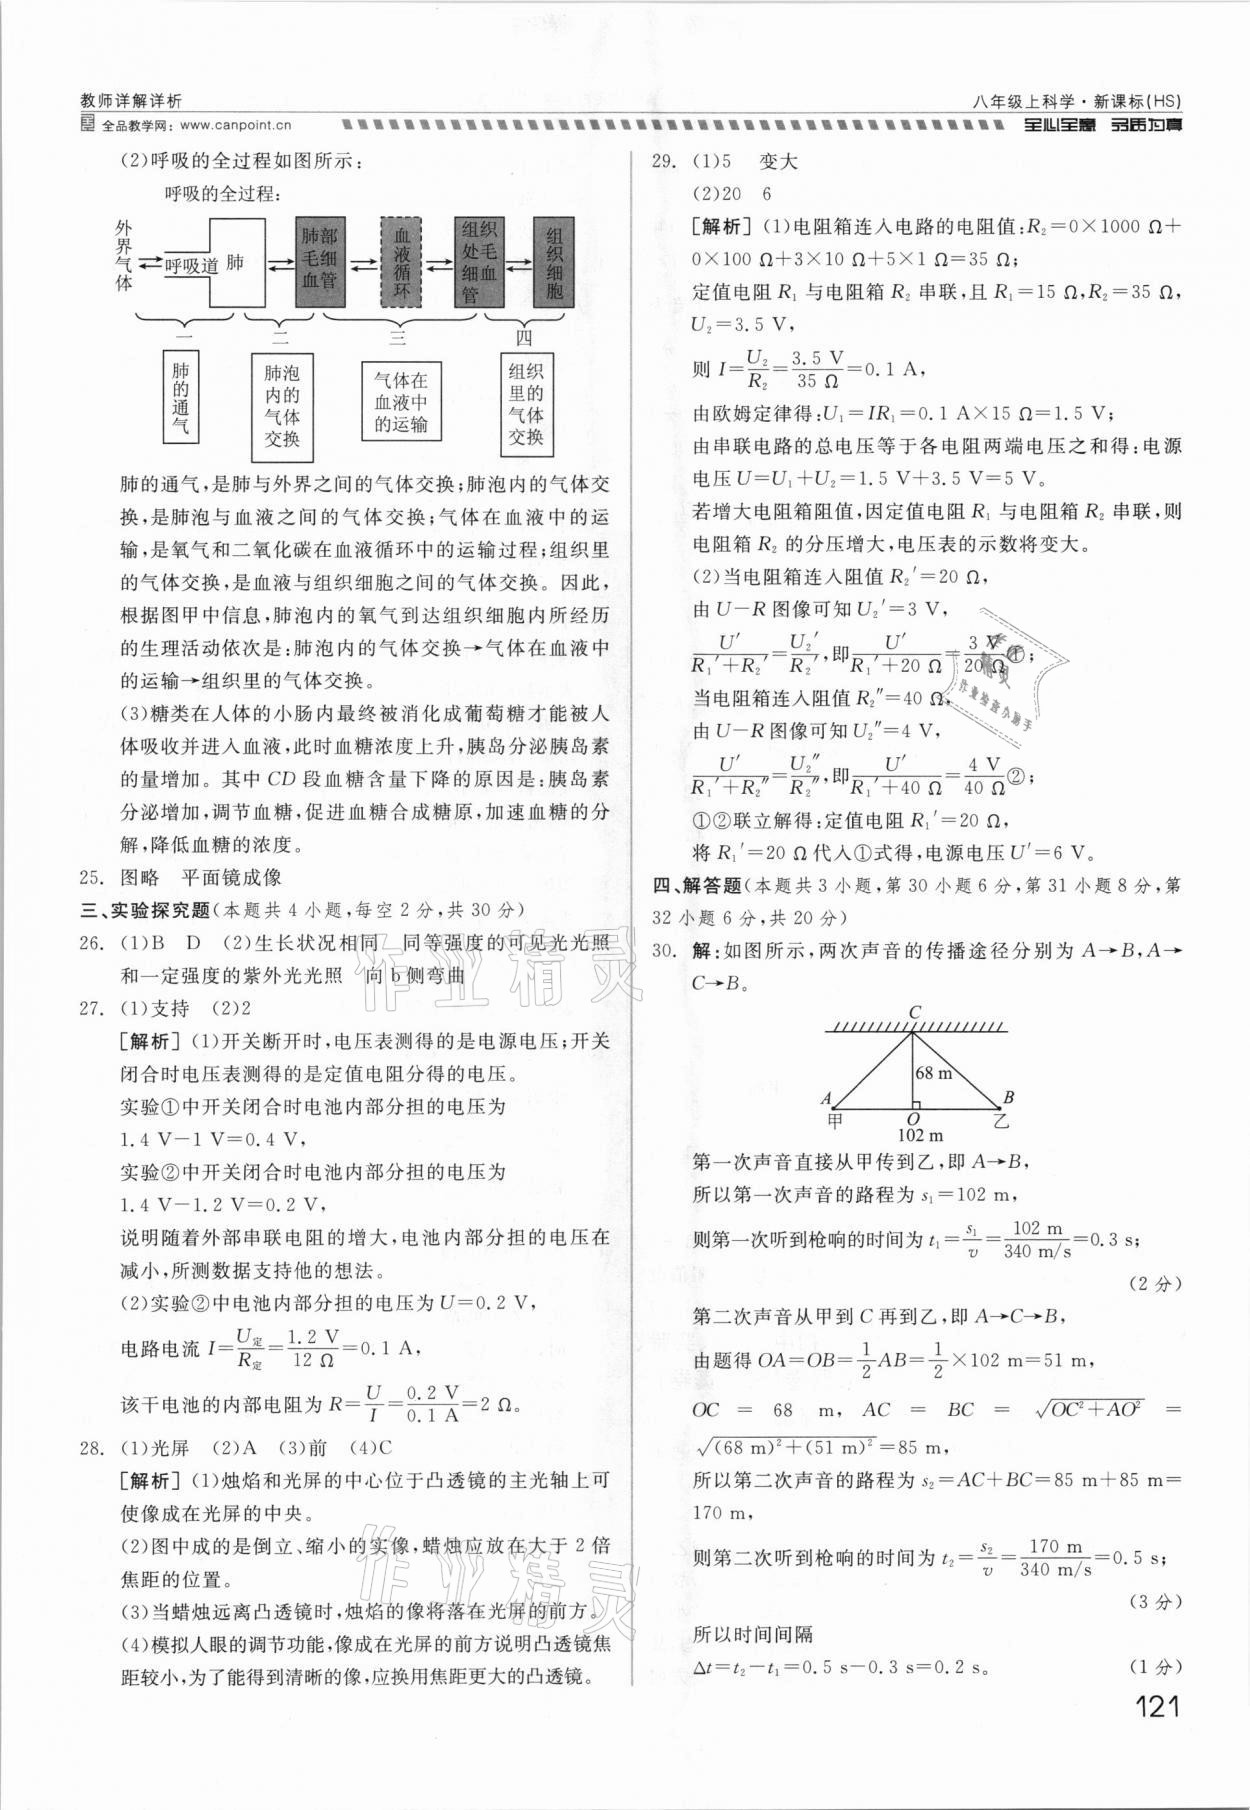 教师详解详析
八年级上科学·新课标(HS)
全品教学网：www.canpoint.cn
全心全意 品质为真
(2)呼吸的全过程如图所示：
呼吸的全过程：
外界气体
呼吸道
肺
肺部毛细血管
血液循环
组织处毛细血管
组织细胞
一
二
三
四
肺的通气
肺泡内的气体交换
气体在血液中的运输
组织里的气体交换
肺的通气,是肺与外界之间的气体交换;肺泡内的气体交
换,是肺泡与血液之间的气体交换;气体在血液中的运
输,是氧气和二氧化碳在血液循环中的运输过程;组织里
的气体交换,是血液与组织细胞之间的气体交换。因此,
根据图甲中信息,肺泡内的氧气到达组织细胞内所经历
的生理活动依次是:肺泡内的气体交换→气体在血液中
的运输→组织里的气体交换。
(3)糖类在人体的小肠内最终被消化成葡萄糖才能被人
体吸收并进入血液,此时血糖浓度上升,胰岛分泌胰岛素
的量增加。其中CD段血糖含量下降的原因是:胰岛素
分泌增加,调节血糖,促进血糖合成糖原,加速血糖的分
解,降低血糖的浓度。
25. 图略 平面镜成像
三、实验探究题(本题共4小题,每空2分,共30分)
26. (1)B D (2)生长状况相同 同等强度的可见光光照
和一定强度的紫外光光照 向b侧弯曲
27. (1)支持 (2)2
[解析] (1)开关断开时,电压表测得的是电源电压;开关
闭合时电压表测得的是定值电阻分得的电压。
实验①中开关闭合时电池内部分担的电压为
1.4 V－1 V＝0.4 V,
实验②中开关闭合时电池内部分担的电压为
1.4 V－1.2 V＝0.2 V,
说明随着外部串联电阻的增大,电池内部分担的电压在
减小,所测数据支持他的想法。
(2)实验②中电池内部分担的电压为U＝0.2 V,
电路电流 I＝U定/R定＝1.2 V/12 Ω＝0.1 A,
该干电池的内部电阻为 R＝U/I＝0.2 V/0.1 A＝2 Ω。
28. (1)光屏 (2)A (3)前 (4)C
[解析] (1)烛焰和光屏的中心位于凸透镜的主光轴上可
使像成在光屏的中央。
(2)图中成的是倒立、缩小的实像,蜡烛应放在大于2倍
焦距的位置。
(3)当蜡烛远离凸透镜时,烛焰的像将落在光屏的前方。
(4)模拟人眼的调节功能,像成在光屏的前方说明凸透镜焦
距较小,为了能得到清晰的像,应换用焦距更大的凸透镜。
29. (1)5 变大
(2)20 6
[解析] (1)电阻箱连入电路的电阻值:R₂＝0×1000 Ω＋
0×100 Ω＋3×10 Ω＋5×1 Ω＝35 Ω;
定值电阻R₁与电阻箱R₂串联,且R₁＝15 Ω,R₂＝35 Ω,
U₂＝3.5 V,
则 I＝U₂/R₂＝3.5 V/35 Ω＝0.1 A,
由欧姆定律得:U₁＝IR₁＝0.1 A×15 Ω＝1.5 V;
由串联电路的总电压等于各电阻两端电压之和得:电源
电压U＝U₁＋U₂＝1.5 V＋3.5 V＝5 V。
若增大电阻箱阻值,因定值电阻R₁与电阻箱R₂串联,则
电阻箱R₂的分压增大,电压表的示数将变大。
(2)当电阻箱连入阻值R₂′＝20 Ω,
由U－R图像可知U₂′＝3 V,
U′/(R₁′＋R₂′)＝U₂′/R₂′,即U′/(R₁′＋20 Ω)＝3 V/20 Ω①;
当电阻箱连入阻值R₂″＝40 Ω,
由U－R图像可知U₂″＝4 V,
U′/(R₁′＋R₂″)＝U₂″/R₂″,即U′/(R₁′＋40 Ω)＝4 V/40 Ω②;
①②联立解得:定值电阻R₁′＝20 Ω,
将R₁′＝20 Ω代入①式得,电源电压U′＝6 V。
四、解答题(本题共3小题,第30小题6分,第31小题8分,第
32小题6分,共20分)
30. 解:如图所示,两次声音的传播途径分别为A→B,A→
C→B。
C
68 m
A
B
甲
O
乙
102 m
第一次声音直接从甲传到乙,即A→B,
所以第一次声音的路程为s₁＝102 m,
则第一次听到枪响的时间为t₁＝s₁/v＝102 m/340 m/s＝0.3 s;
(2分)
第二次声音从甲到C再到乙,即A→C→B,
由题得OA＝OB＝1/2AB＝1/2×102 m＝51 m,
OC ＝ 68 m, AC ＝ BC ＝ √(OC²＋AO²) ＝
√((68 m)²＋(51 m)²)＝85 m,
所以第二次声音的路程为s₂＝AC＋BC＝85 m＋85 m＝
170 m,
则第二次听到枪响的时间为t₂＝s₂/v＝170 m/340 m/s＝0.5 s;
(3分)
所以时间间隔
Δt＝t₂－t₁＝0.5 s－0.3 s＝0.2 s。 (1分)
121
作业精灵
作业精灵
作业精灵
作业检查小助手